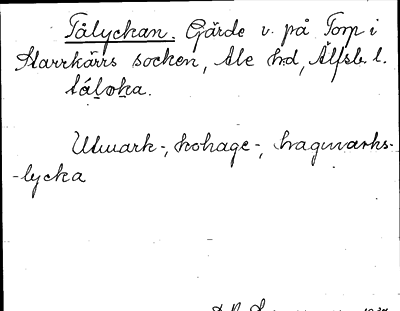 Tålyckan. Gärde v. på Torp i
Starrkärrs socken, Ale hd, Älfsb. l.
tálɷka.
Utmark-, kohage-, hagmarks-
-lycka